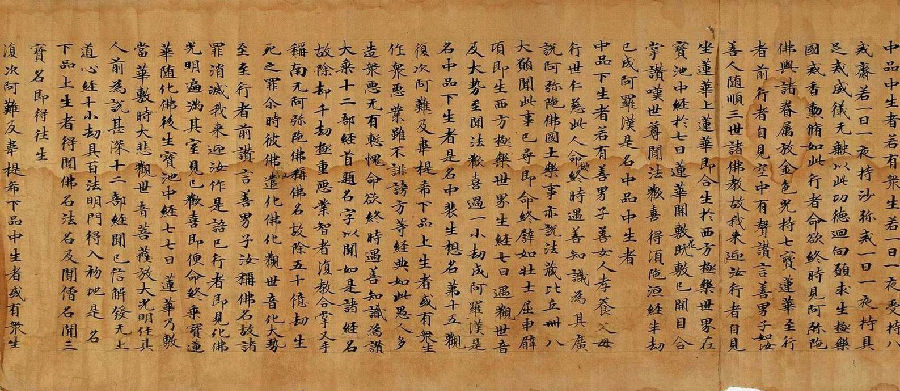 中品中生者若有衆生若一日一夜受持八
戒齋若一日一夜持沙弥戒一日一夜持具
足戒威儀无缺以此功德迴向願求生極樂
國戒香勳脩如此行者命欲終時見阿弥陁
佛與諸眷屬放金色光持七寶蓮華至行
者前行者自見空中有聲讚言善男子如汝
善人随順三世諸佛教故我来迎汝行者自見
坐蓮華上蓮華即合生於西方極樂世界在
寶池中經於七日蓮華開敷既敷已開目合
掌讚嘆世尊聞法歡喜得湏陁洹經半劫
已成阿羅漢是名中品中生者
中品下生者若有善男子善女人孝養父母
行世仁慈此人命終時遇善知識為其廣
說阿弥陁佛國土樂事亦說法藏比丘卌八
大願聞此事已尋即命終譬如壯士屈申臂
頃即生西方極樂世界生經七日遇觀世音
及大勢至聞法歡喜過一小劫成阿羅漢是
名中品下生者是名中輩生想名第十五觀
復次阿難及韋提希下品上生者或有衆生
作衆惡業雖不誹謗方等經典如此愚人多
造衆惡无有慙愧命欲終時遇善知識為讚
大乘十二部經首題名字以聞如是諸經名
故除却千劫極重惡業智者復教合掌叉手
稱南无阿弥陁佛稱佛名故除五十億劫生
死之罪尒時彼佛即遣化佛化觀世音化大勢
至至行者前讚言善男子汝稱佛名故諸
罪消滅我来迎汝作是語已行者即見化佛
光明遍滿其室見已歡喜即便命終乘寶蓮
華随化佛後生寶池中經七七日蓮華乃敷
當華敷時大悲觀世音菩薩放大光明住其
人前為說甚深十二部經聞已信解發无上
道心經十小劫具百法明門得入初地是名
下品上生者得聞佛名法名及聞僧名聞三
寶名即得往生
復次阿難及韋提希下品中生者或有衆生